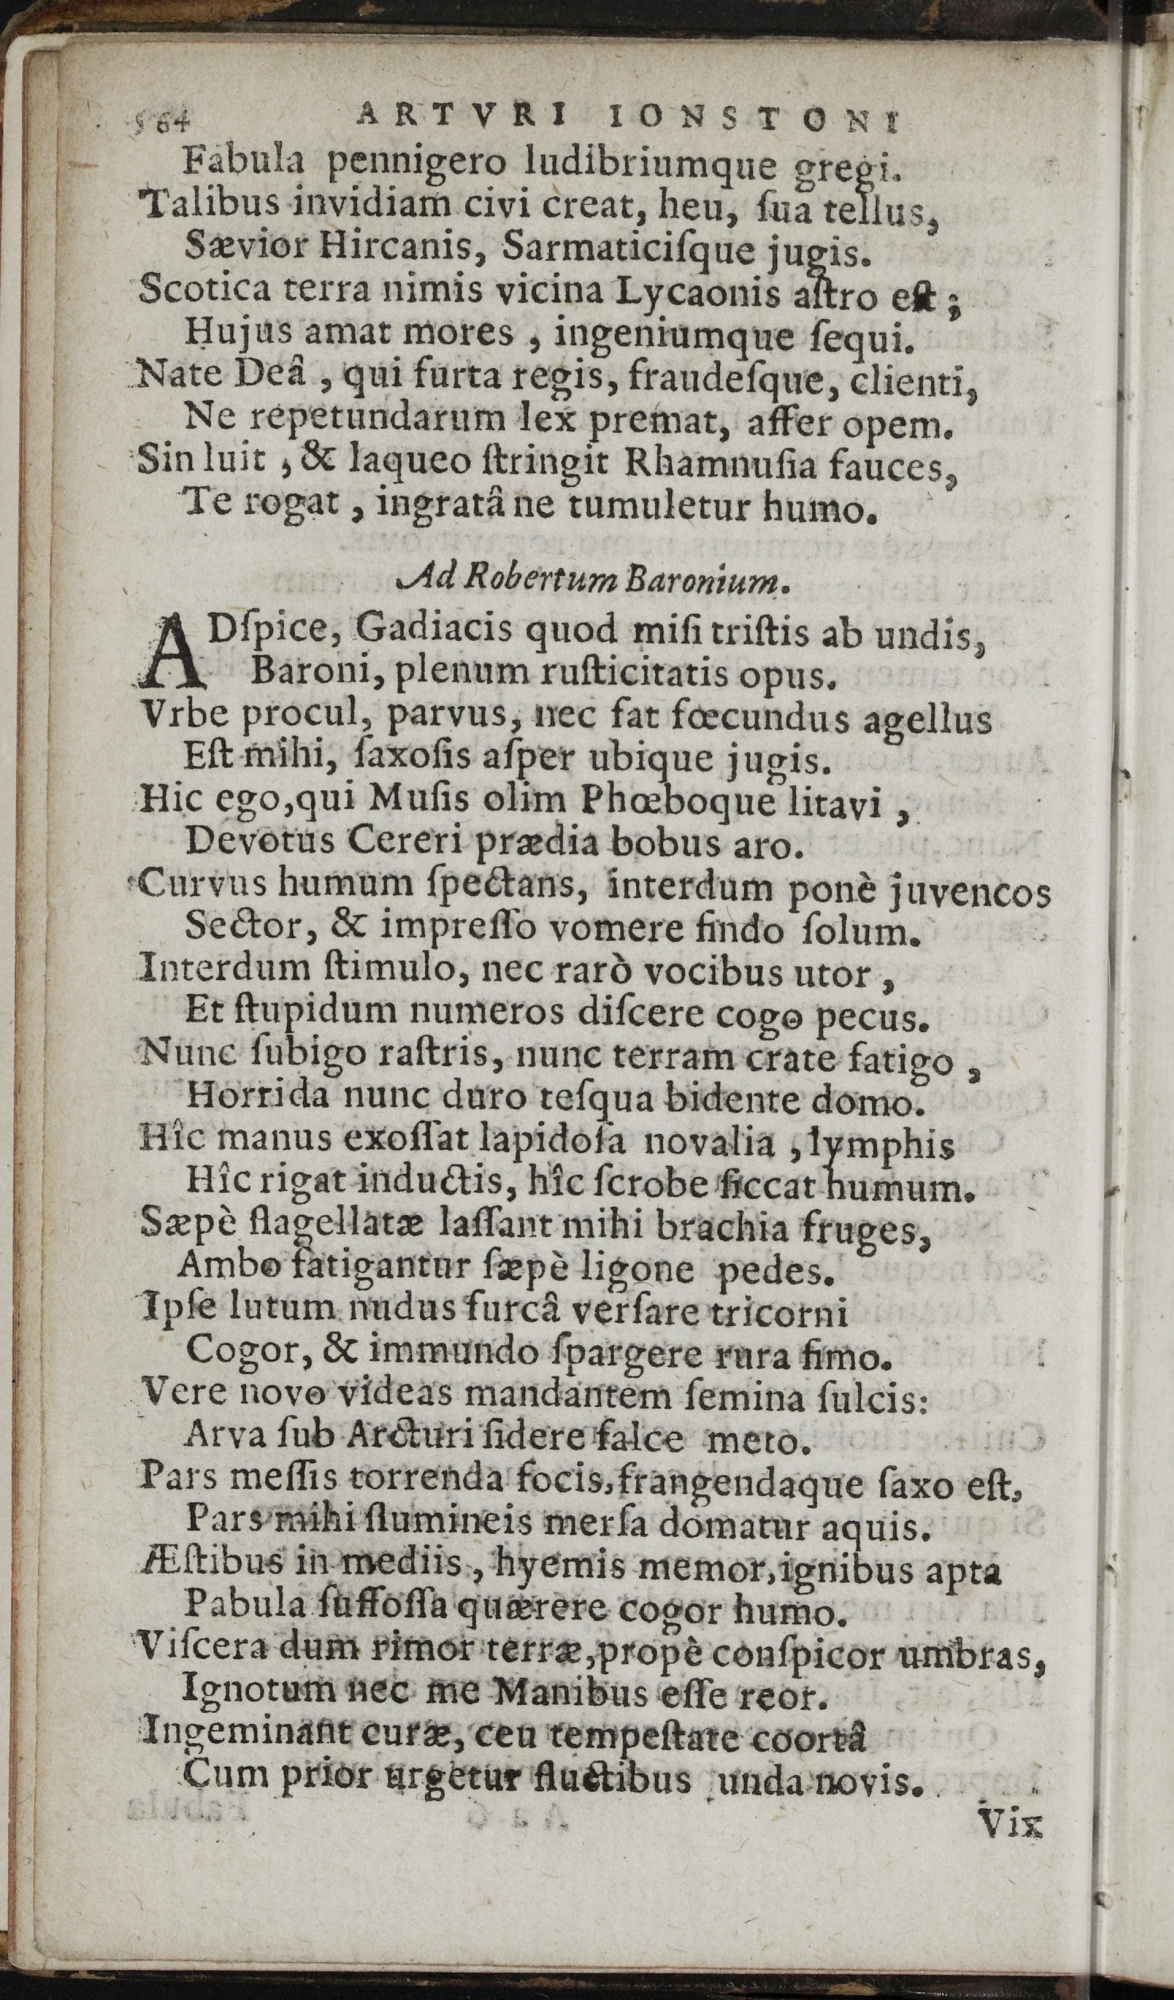 564 ARTVRI IONSTONI
Fabula pennigero ludibriumque gregi.
Talibus invidiam civi creat, heu, ſua tellus,
Sævior Hircanis, Sarmaticiſque jugis.
Scotica terra nimis vicina Lycaonis aſtro eſt ;
Hujus amat mores , ingeniumque ſequi.
Nate Deâ , qui furta regis, fraudeſque, clienti,
Ne repetundarum lex premat, affer opem.
Sin luit , & laqueo ſtringit Rhamnuſia fauces,
Te rogat , ingratâ ne tumuletur humo.
Ad Robertum Baronium.
ADſpice, Gadiacis quod miſi triſtis ab undis,
Baroni, plenum ruſticitatis opus.
Vrbe procul, parvus, nec ſat fœcundus agellus
Eſt mihi, ſaxoſis aſper ubique jugis.
Hic ego, qui Muſis olim Phœboque litavi ,
Devotus Cereri prædia bobus aro.
Curvus humum ſpectans, interdum ponè juvencos
Sector, & impreſſo vomere findo ſolum.
Interdum ſtimulo, nec rarò vocibus utor ,
Et ſtupidum numeros diſcere cogo pecus.
Nunc ſubigo raſtris, nunc terram crate fatigo ,
Horrida nunc duro teſqua bidente domo.
Hîc manus exoſſat lapidoſa novalia , lymphis
Hîc rigat inductis, hîc ſcrobe ſiccat humum.
Sæpè flagellatæ laſſant mihi brachia fruges,
Ambo fatigantur ſæpè ligone pedes.
Ipſe lutum nudus furcâ verſare tricorni
Cogor, & immundo ſpargere rura fimo.
Vere novo videas mandantem ſemina ſulcis:
Arva ſub Arcturi ſidere falce meto.
Pars meſſis torrenda focis, frangendaque ſaxo eſt,
Pars mihi flumineis merſa domatur aquis.
Æſtibus in mediis , hyemis memor, ignibus apta
Pabula ſuffoſſa quærere cogor humo.
Viſcera dum rimor terræ, propè conſpicor umbras,
Ignotum nec me Manibus eſſe reor.
Ingeminant curæ, ceu tempeſtate coortâ
Cum prior urgetur fluctibus unda novis.
Vix